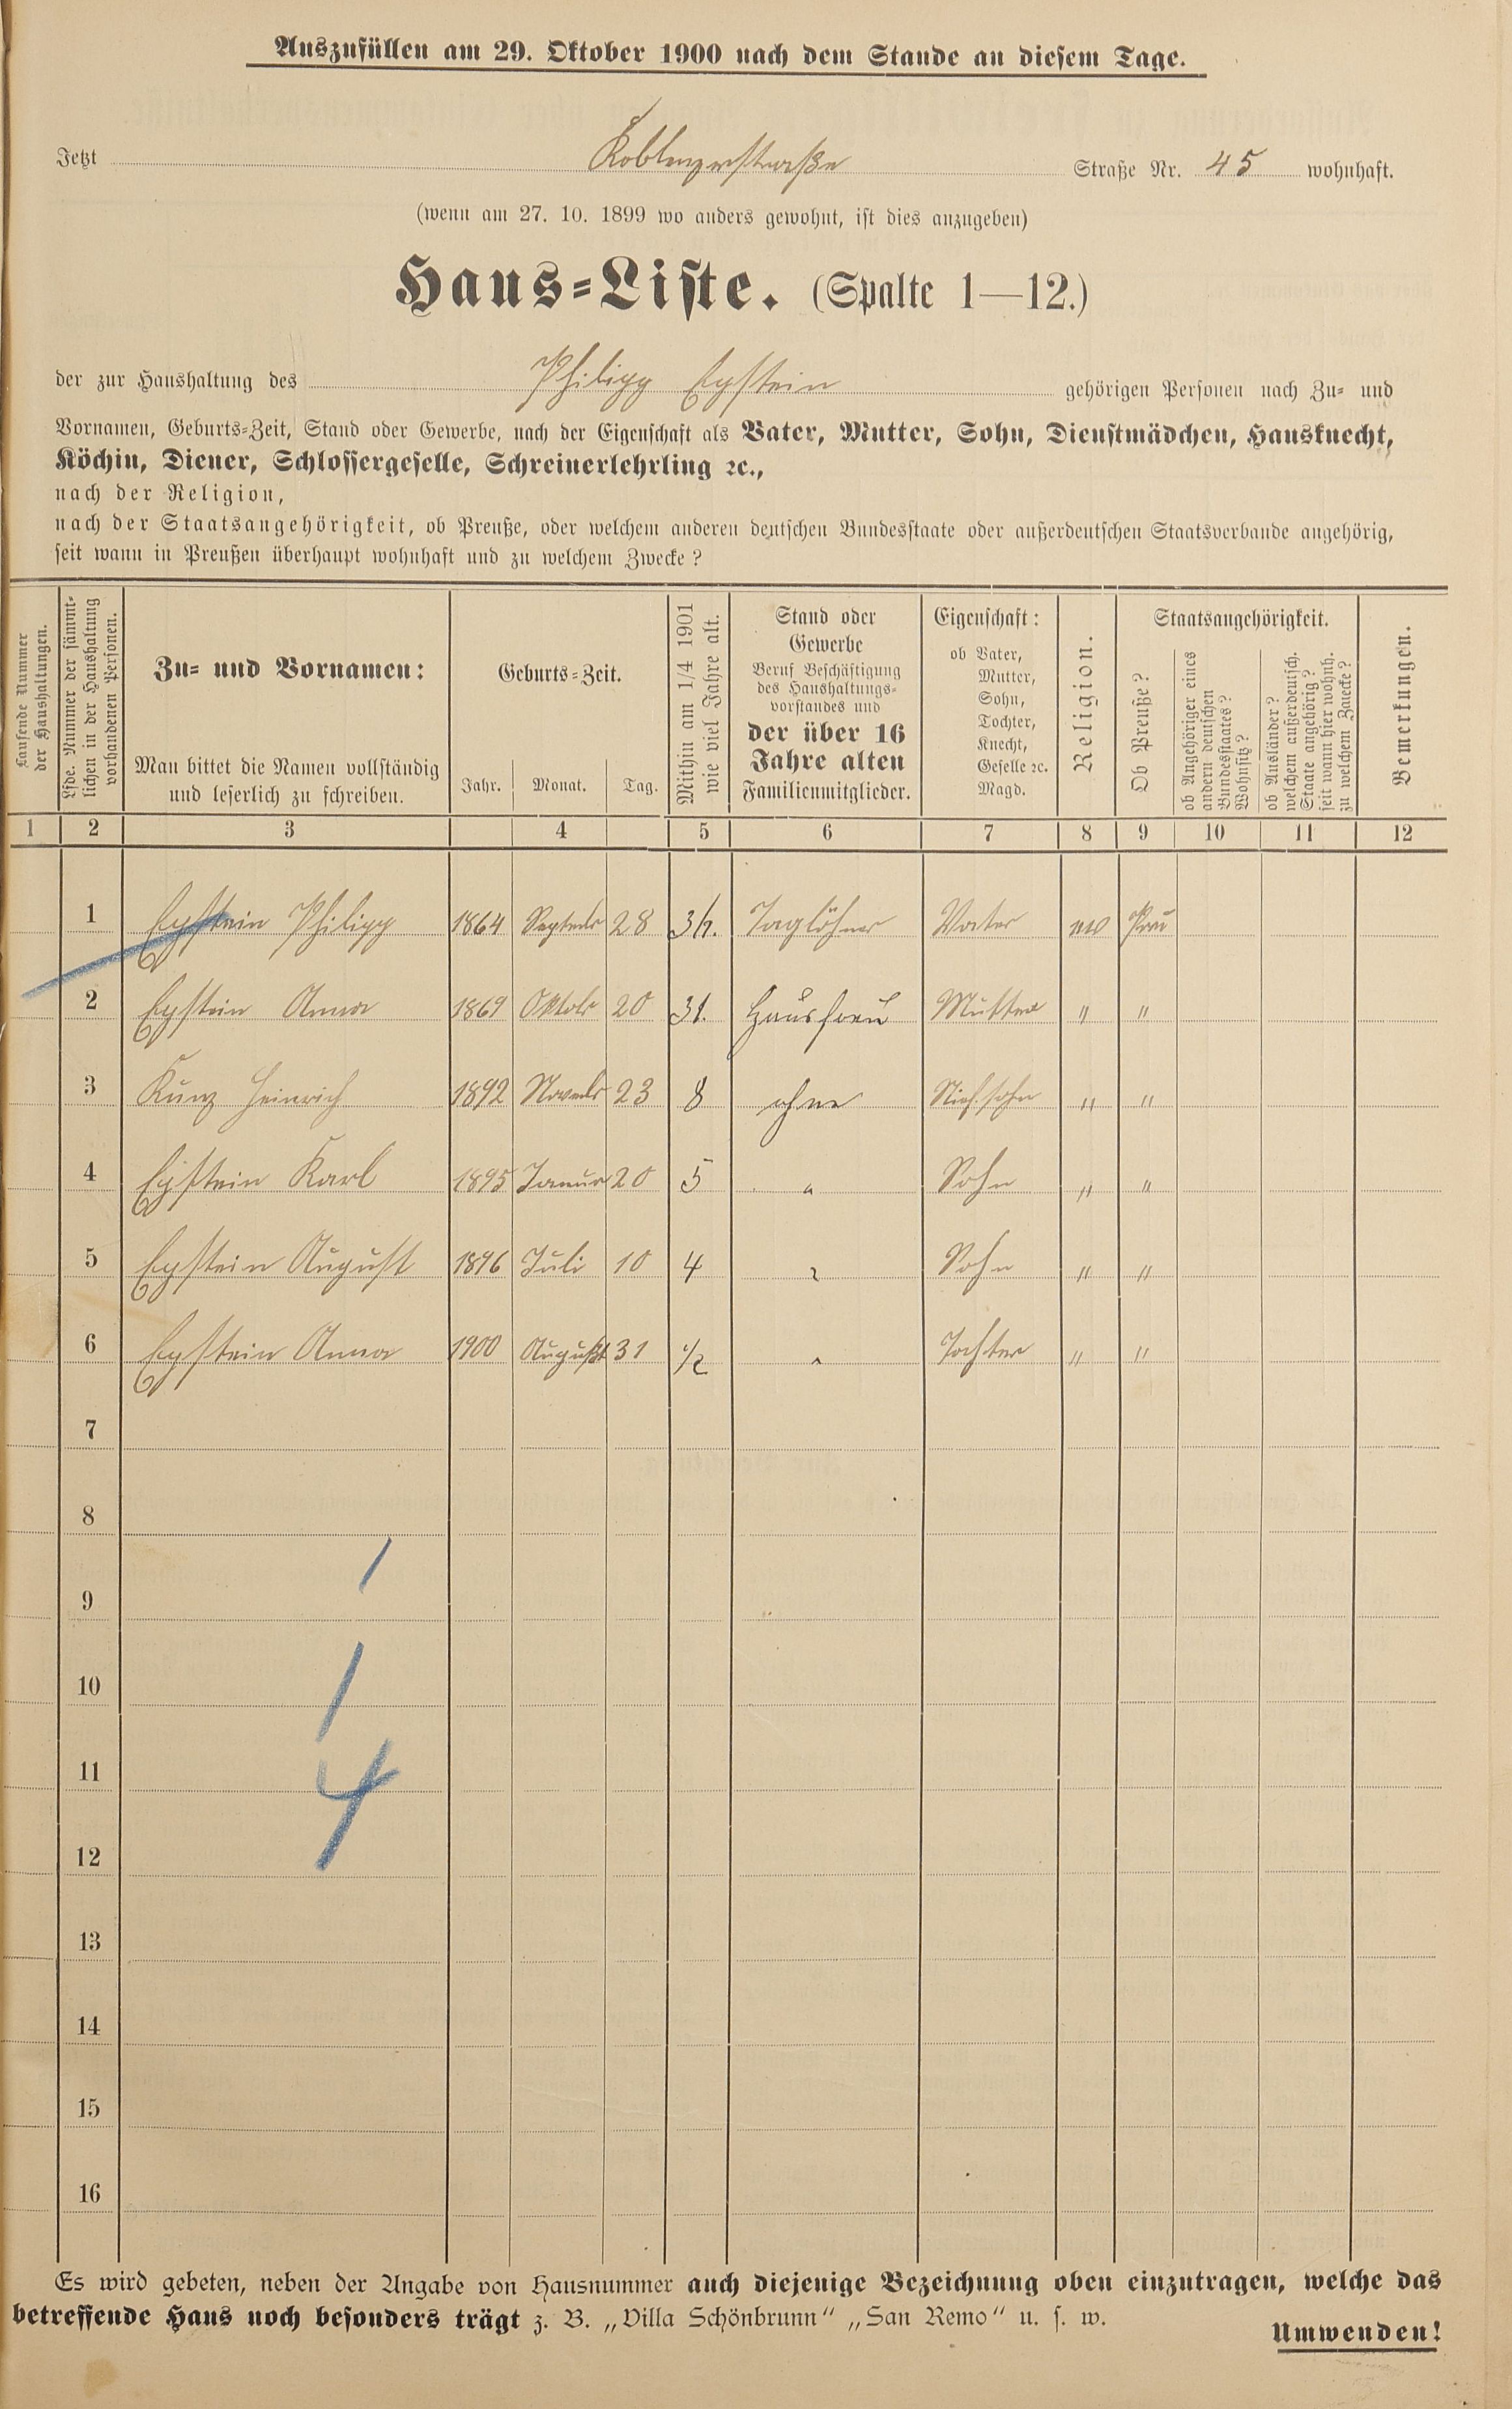 Auszufüllen am 29. Oktober 1900 nach dem Stande an diesem Tage.
Jetzt Koblenzerstraße Straße Nr. 45 wohnhaft.
(wenn am 27. 10. 1899 wo anders gewohnt, ist dies anzugeben)
Haus-Liste. (Spalte 1—12.)
der zur Haushaltung des Philipp Epstein gehörigen Personen nach Zu- und
Vornamen, Geburts-Zeit, Stand oder Gewerbe, nach der Eigenschaft als Vater, Mutter, Sohn, Dienstmädchen, Hausknecht,
Köchin, Diener, Schlossergeselle, Schreinerlehrling ꝛc.,
nach der Religion,
nach der Staatsangehörigkeit, ob Preuße, oder welchem anderen deutschen Bundesstaate oder außerdeutschen Staatsverbande angehörig,
seit wann in Preußen überhaupt wohnhaft und zu welchem Zwecke?
Laufende Nummer
der Haushaltungen.
Lfde. Nummer der sämmt-
lichen in der Haushaltung
vorhandenen Personen.
Zu- und Vornamen:
Man bittet die Namen vollständig
und leserlich zu schreiben.
Geburts-Zeit.
Jahr. Monat. Tag.
Mithin am 1/4 1901
wie viel Jahre alt.
Stand oder
Gewerbe
Beruf Beschäftigung
des Haushaltungs-
vorstandes und
der über 16
Jahre alten
Familienmitglieder.
Eigenschaft:
ob Vater,
Mutter,
Sohn,
Tochter,
Knecht,
Geselle ꝛc.
Magd.
Religion.
Staatsangehörigkeit.
Ob Preuße?
ob Angehöriger eines
andern deutschen
Bundesstaates?
Wohnsitz?
ob Ausländer?
welchem außerdeutsch.
Staate angehörig?
seit wann hier wohnh.
zu welchem Zwecke?
Bemerkungen.
1 2 3 4 5 6 7 8 9 10 11 12
1 Epstein Philipp 1864 Septembr 28 Taglöhner Vater
2 Epstein Anna 1869 Oktobr 20 31. Hausfrau Mutter " "
3 Kunz Heinrich 1892 Novembr 23 8 ohne " "
4 Epstein Karl 1895 Januar 20 5 " Sohn " "
5 Epstein August 1896 Juli 10 4 " Sohn " "
6 Epstein Anna 1900 August 31 1/2 " Tochter " "
7
8
9
10
11
12
13
14
15
16
1
1
4
Es wird gebeten, neben der Angabe von Hausnummer auch diejenige Bezeichnung oben einzutragen, welche das
betreffende Haus noch besonders trägt z. B. „Villa Schönbrunn“ „San Remo“ u. s. w.
Umwenden!